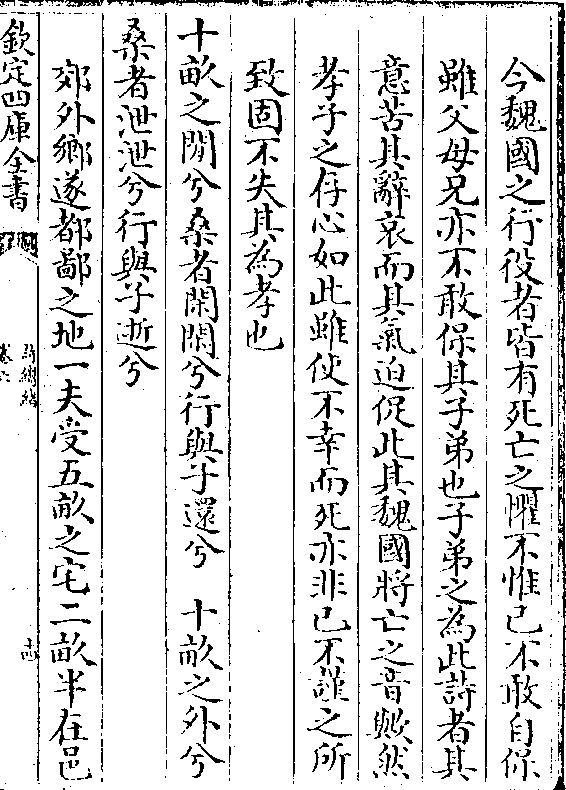 今魏國之行役者皆有死亡之懼不惟己不敢自保
雖父母兄亦不敢保其子弟也子弟之為此詩者其
意苦其辭哀而其氣迫促此其魏國將亡之音歟然
孝子之存心如此雖使不幸而死亦非已不謹之所
致固不失其為孝也
十畝之間兮桑者閑閑兮行與子還兮　十畝之外兮
桑者泄泄兮行與子逝兮
郊外鄉遂都鄙之地一夫受五畝之宅二畝半在邑
欽定四庫全書